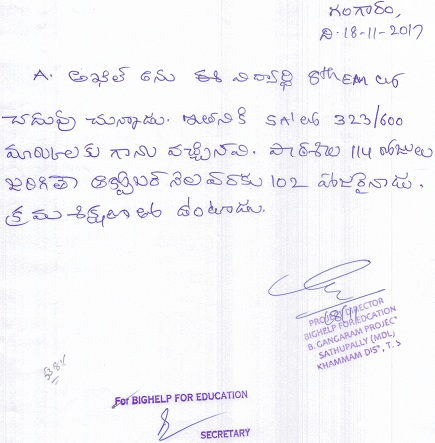 గంగారం,
ది-18-11-2017
A. అఖిల్ అను ఈ విద్యార్థి 8th EM లో
చదువు చున్నాడు. ఇతనికి SA1 లో 323/600
మార్కులకు గాను వచ్చినవి. పాఠశాల 114 రోజులు
జరిగితే అక్టోబర్ నెల వరకు 102 హాజరైనాడు.
క్రమశిక్షణతో ఉంటాడు.
PROJECT DIRECTOR
BIGHELP FOR EDCATION
B. GANGARAM PROJEC
SATHUPALLY (MDL)
KHAMMAM DIS', T. S
For BIGHELP FOR EDUCATION
SECRETARY